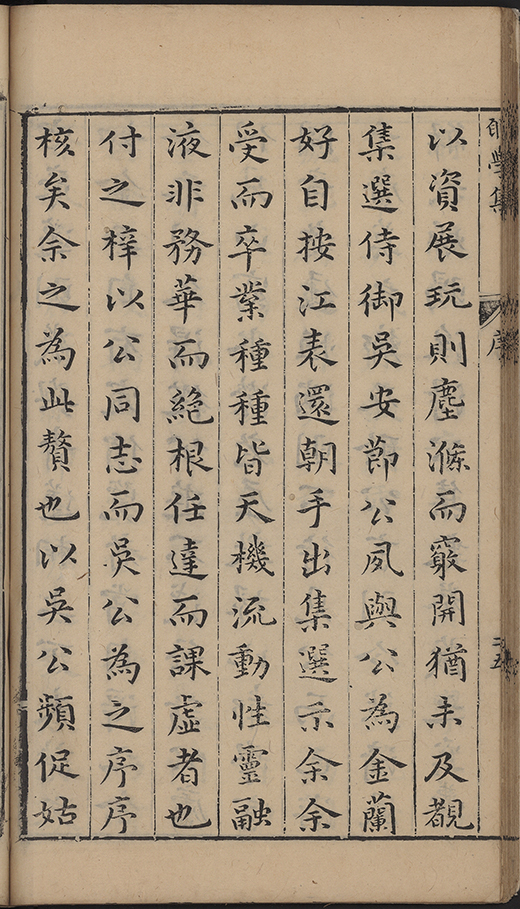 學集
序
以資展玩則塵滌而竅開猶未及覩
集選侍御吳安莭公夙與公為金蘭
好自按江表還朝手出集選示余余
受而卒業種種皆天機流動性靈融
液非務華而絶根任達而課虛者也
付之梓以公同志而吳公為之序序
核矣余之為此贅也以吳公頻促姑